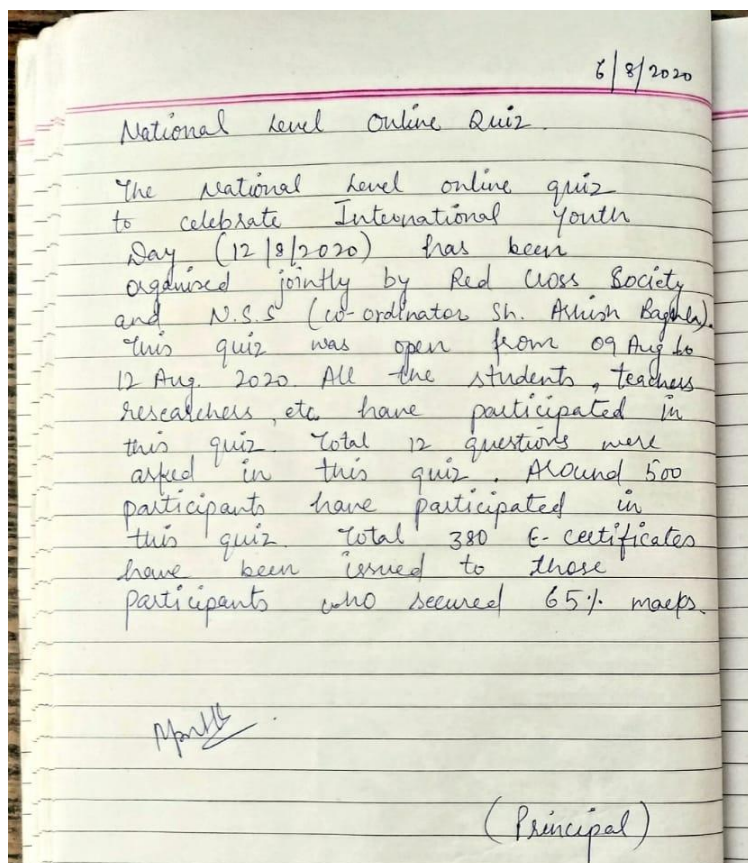 6/8/2020
National Level Online Quiz.
The National Level online quiz
to celebrate International Youth
Day (12/8/2020) has been
organised jointly by Red Cross Society
and N.S.S (co-ordinator Sh. Ashish
This quiz was open from 09 Aug to
12 Aug. 2020. All the students, teachers
researchers, etc have participated in
this quiz. Total 12 questions were
asked in this quiz. Around 500
participants have participated in
this quiz. Total 380 E-certificates
have been issued to those
participants who secured 65% marks.
(Principal)